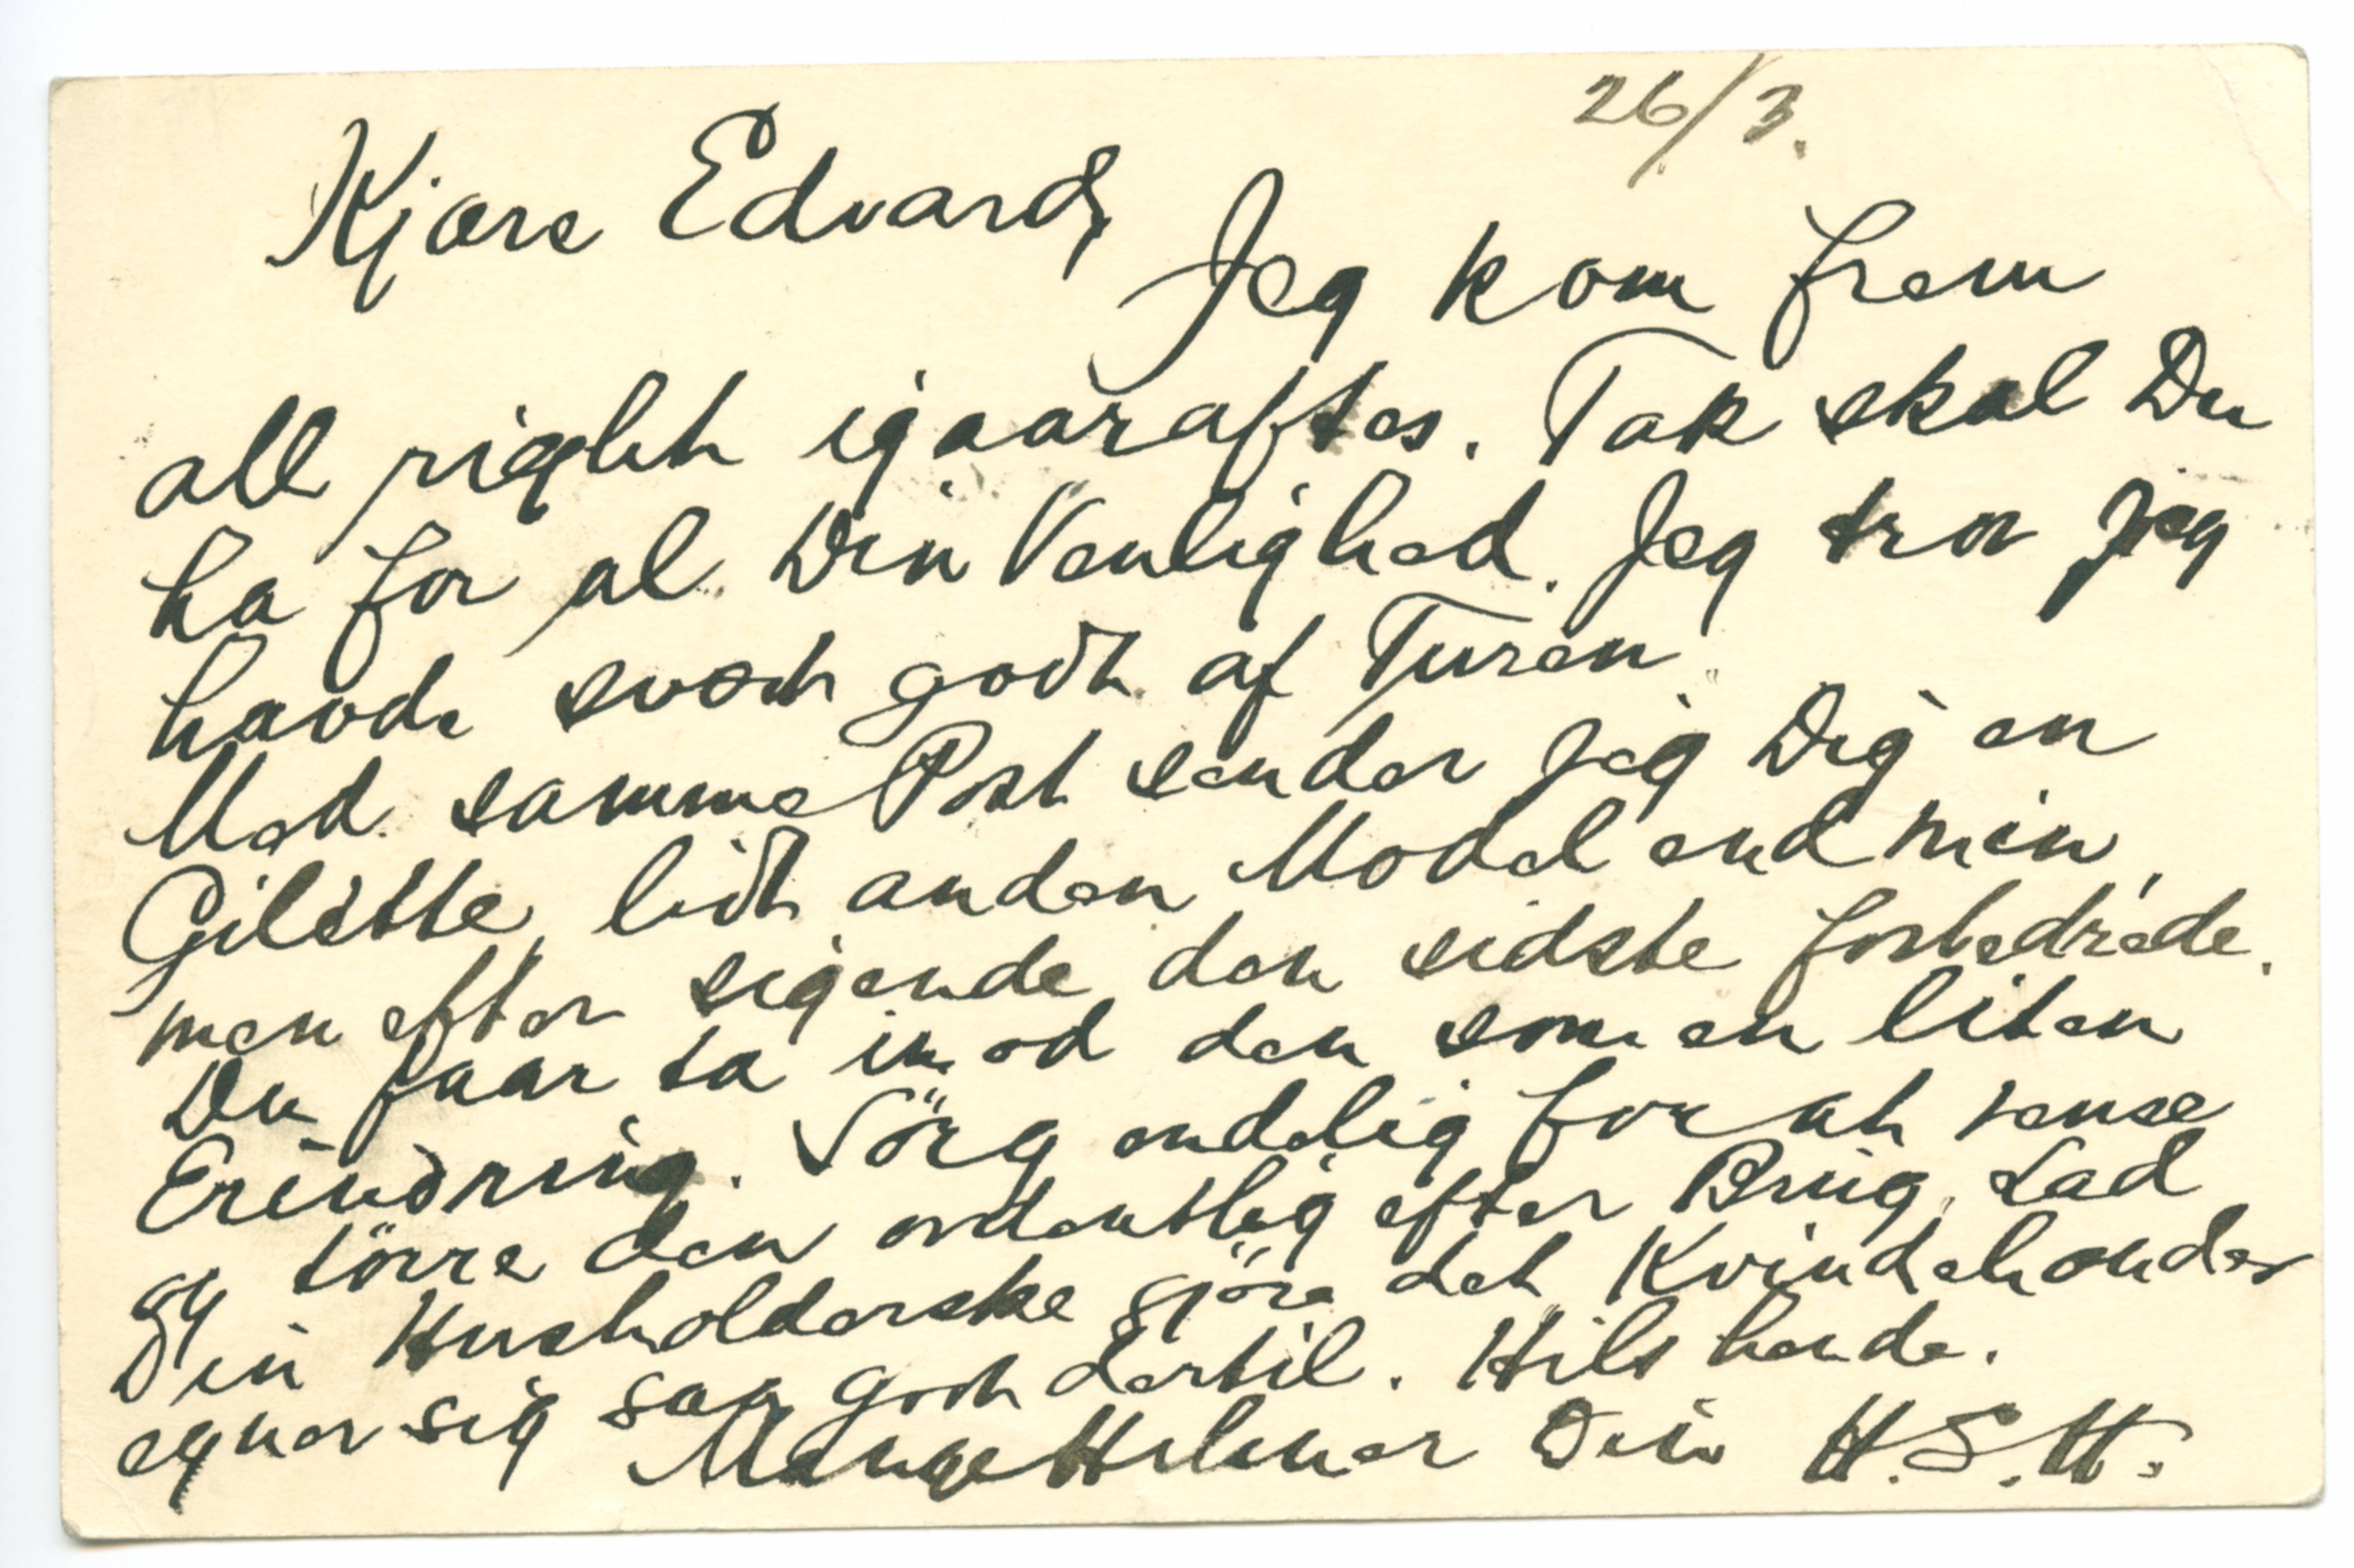 26/3.
Kjære Edvard,
Jeg kom frem
all right igaaraftes. Tak skal Du
ha for al Din Venlighed. Jeg tror jeg
havde svært godt af Turen.
Med samme Post sender jeg Dig en
Gilette, lidt anden Model end min,
men efter sigende den sidste forbedrede.
Du faar ta imod den som en liten
Erindring. Sörg endelig for at rense
og törre den ordentlig efter Brug. Lad
Din Husholderske gjöre det Kvindehænder
egner sig saa godt dertil. Hils hende.
Mange Hilsner Din H.S.H.